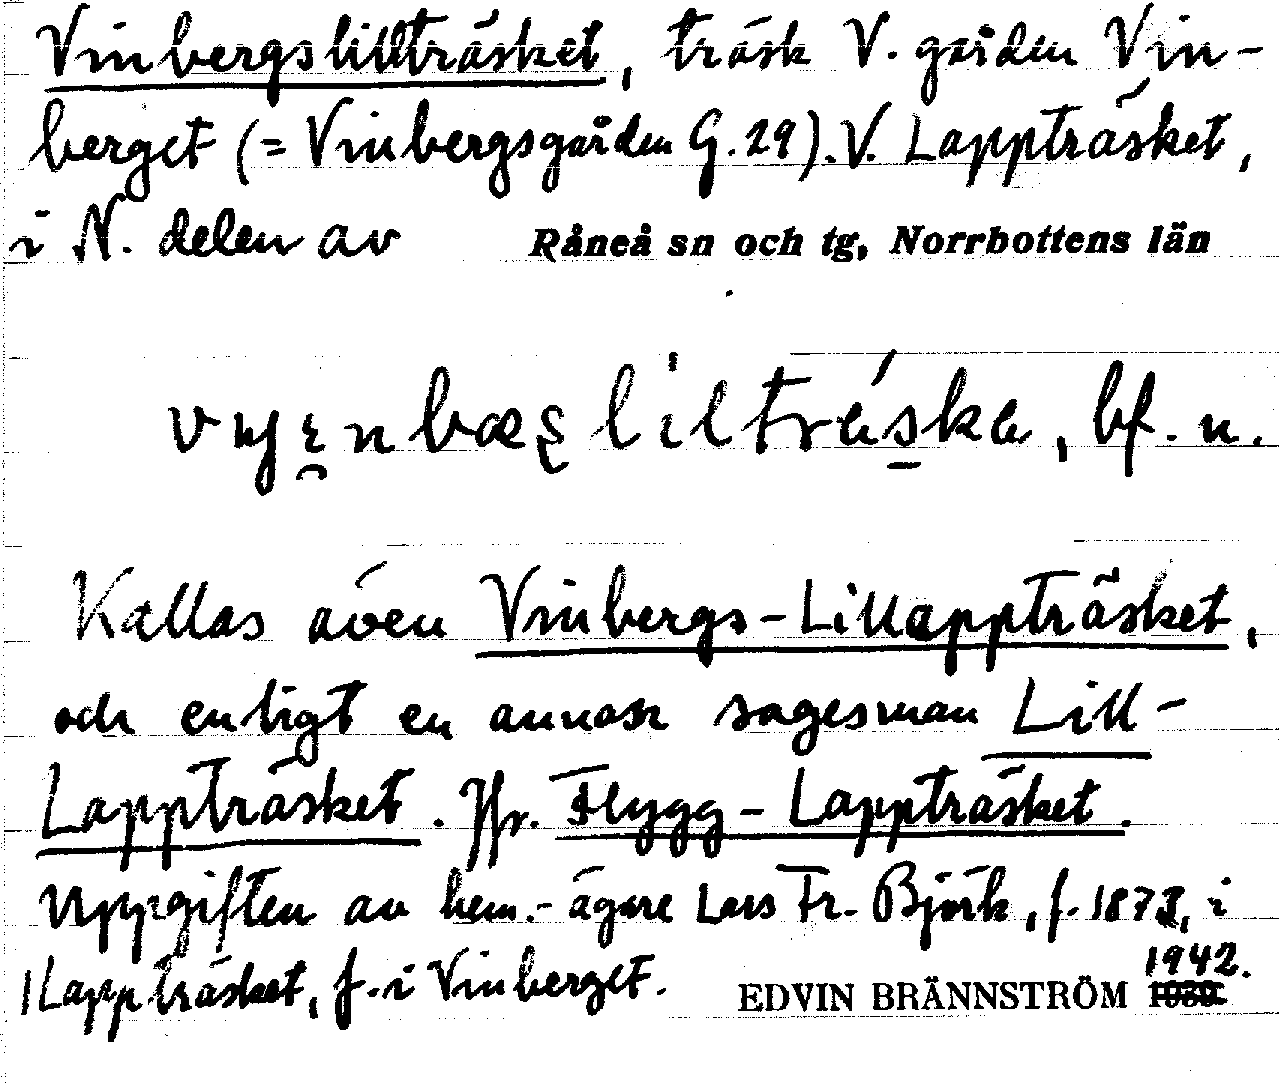 Vinbergslillträsket, träsk V. gården Vin-
berget (= Vinbergsgården G. 29). V. Lappträsket,
i N. delen av Råneå sn och tg, Norrbottens län
bf. n.
Kallas även Vinbergs-Lillappträsket,
och enligt en annan sagesman Lill-
Lappträsket. Jfr. Flygg-Lappträsket.
Uppgiften av hem.-ägare Lars Fr. Björk, f. 1873, i
Lappträsket, f. i Vinberget. EDVIN BRÄNNSTRÖM 1942.